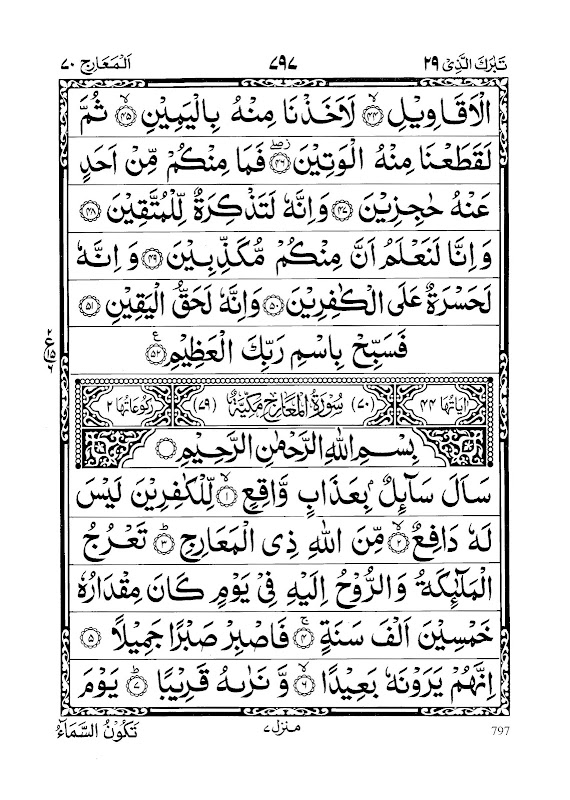 تَبٰرَكَ الَّذِىْ ٢٩ ٧٩٧ اَلْمَعَارِج ٧٠
الْاَقَاوِيْلِ ۙ‏﴿۴۴﴾ لَاَخَذْنَا مِنْهُ بِالْيَمِيْنِ ۙ‏﴿۴۵﴾ ثُمَّ
لَقَطَعْنَا مِنْهُ الْوَتِيْنَ ‏﴿۴۶﴾ فَمَا مِنْكُمْ مِّنْ اَحَدٍ
عَنْهُ حٰجِزِيْنَ ‏﴿۴۷﴾ وَاِنَّهٗ لَتَذْكِرَةٌ لِّلْمُتَّقِيْنَ ‏﴿۴۸﴾
وَاِنَّا لَنَعْلَمُ اَنَّ مِنْكُمْ مُّكَذِّبِيْنَ ‏﴿۴۹﴾ وَاِنَّهٗ
لَحَسْرَةٌ عَلَى الْكٰفِرِيْنَ ‏﴿۵۰﴾ وَاِنَّهٗ لَحَقُّ الْيَقِيْنِ ‏﴿۵۱﴾
فَسَبِّحْ بِاسْمِ رَبِّكَ الْعَظِيْمِ ‏﴿۵۲﴾
اٰيَاتُهَا ٤٤ (٧٠) سُوْرَةُ الْمَعَارِجِ مَكِّيَّةٌ (٧٩) رُكُوْعَاتُهَا ٢
بِسْمِ اللهِ الرَّحْمٰنِ الرَّحِيْمِ
سَاَلَ سَآئِلٌۢ بِعَذَابٍ وَّاقِعٍ ۙ‏﴿۱﴾ لِّلْكٰفِرِيْنَ لَيْسَ
لَهٗ دَافِعٌ ۙ‏﴿۲﴾ مِّنَ اللهِ ذِى الْمَعَارِجِ ؕ‏﴿۳﴾ تَعْرُجُ
الْمَلٰٓئِكَةُ وَالرُّوْحُ اِلَيْهِ فِىْ يَوْمٍ كَانَ مِقْدَارُهٗ
خَمْسِيْنَ اَلْفَ سَنَةٍ ۚ‏﴿۴﴾ فَاصْبِرْ صَبْرًا جَمِيْلًا ‏﴿۵﴾
اِنَّهُمْ يَرَوْنَهٗ بَعِيْدًا ۙ‏﴿۶﴾ وَّنَرٰىهُ قَرِيْبًا ؕ‏﴿۷﴾ يَوْمَ
تَكُوْنُ السَّمَآءُ منزل ٧ 797